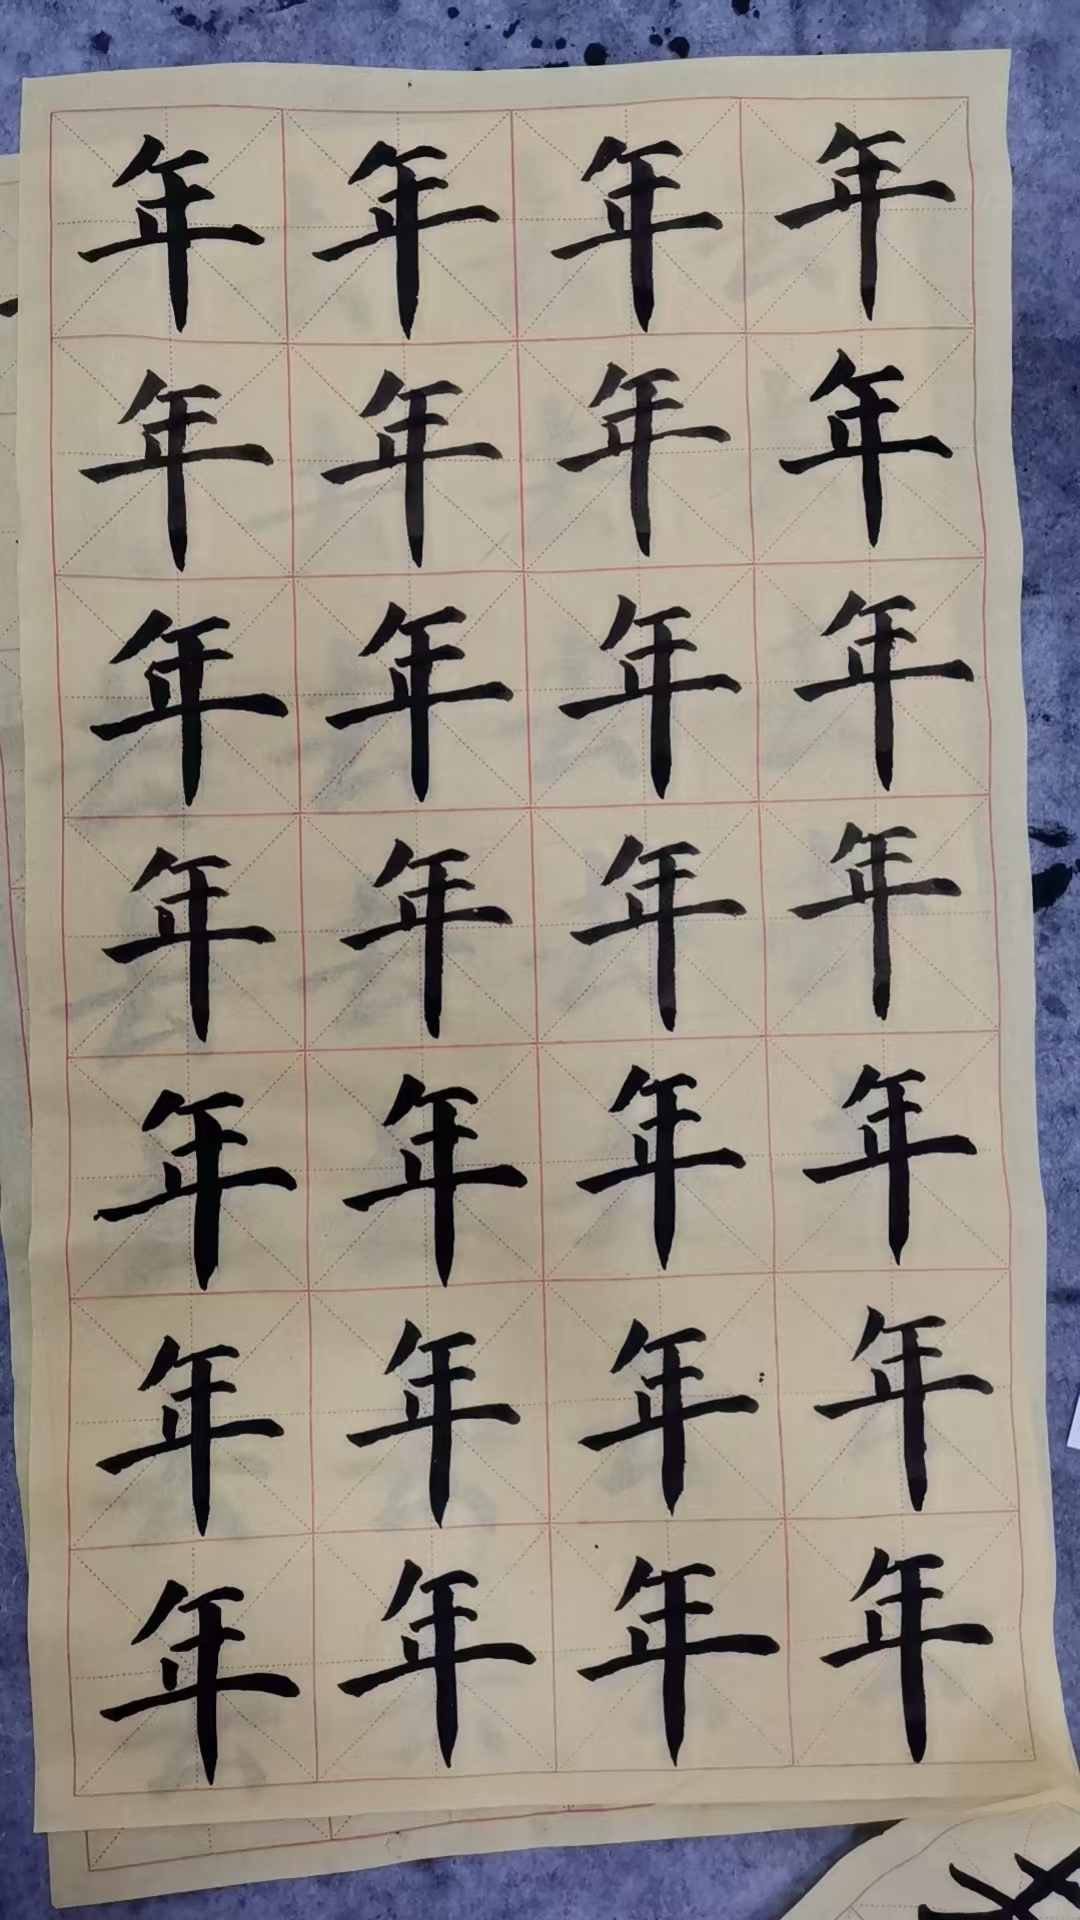 年年年年
年年年年
年年年年
年年年年
年年年年
年年年年
年年年年